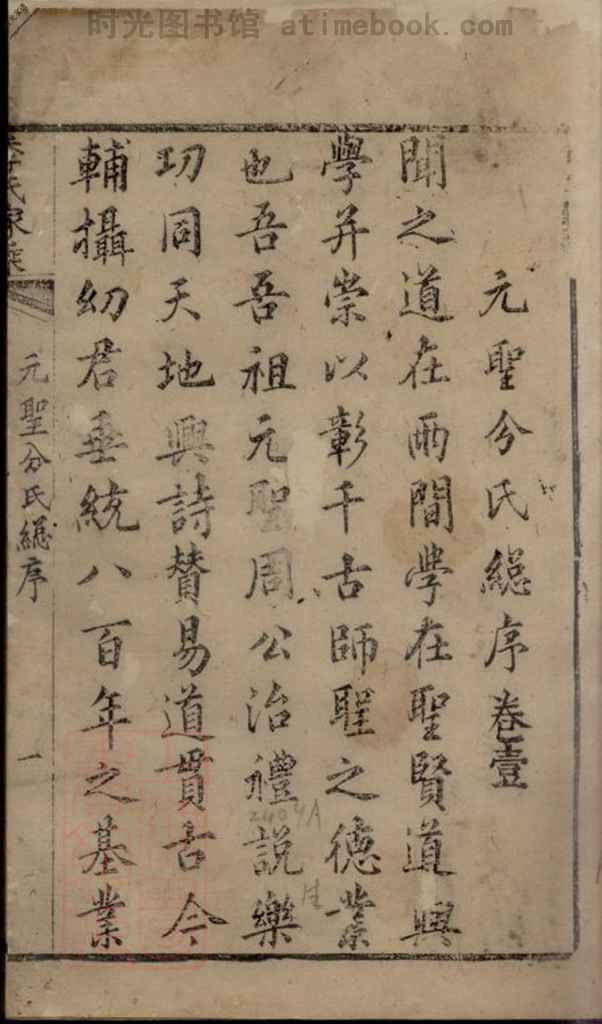 时光图书馆 atimebook.com
元聖分氏緫序卷壹
聞之道在兩間學在聖賢道興
學并崇以彰千古師聖之德業
也吾吾祖元聖周公治禮說樂
功同天地興詩贊易道貫古今
輔攝幼君垂統八百年之基業
氏家乘
元聖分氏緫序
一
2404A